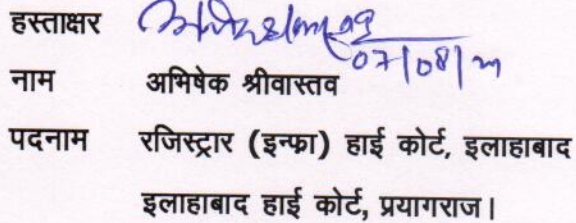 हस्ताक्षर
07/08/
नाम अभिषेक श्रीवास्तव
पदनाम रजिस्ट्रार (इन्फ्रा) हाई कोर्ट, इलाहाबाद
इलाहाबाद हाई कोर्ट, प्रयागराज।